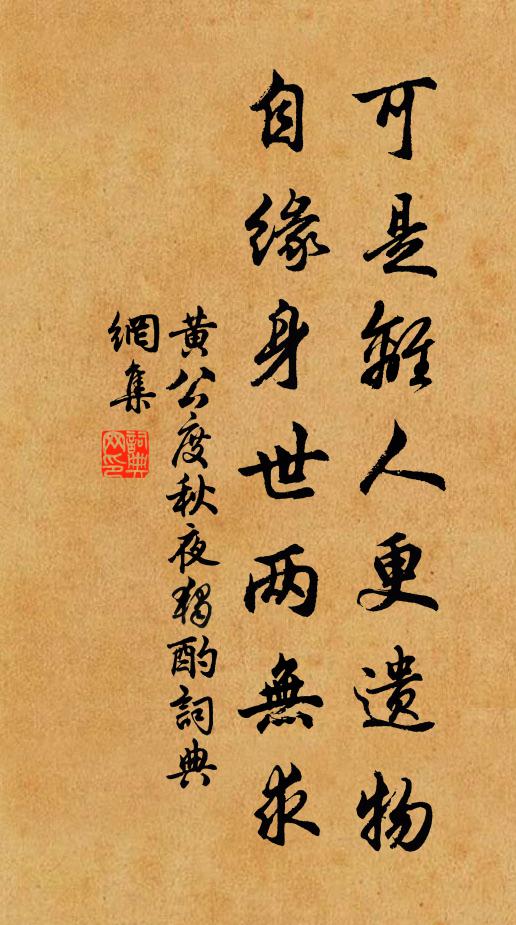 可是離人更遺物
自緣身世两無求
黃公度秋夜獨酌詞典
網集
詞典
网印